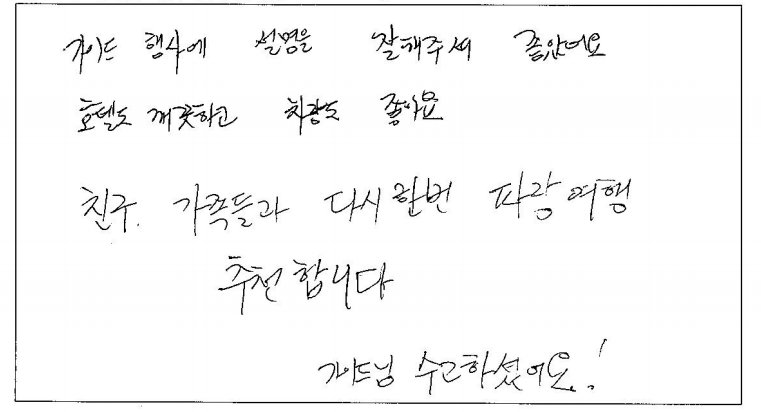 가이드 행사에 설명을 잘해주셔 좋았어요
호텔도 깨끗하고 차량도 좋아요
친구. 가족들과 다시한번 파랑여행
추천합니다
가이드님 수고하셨어요!